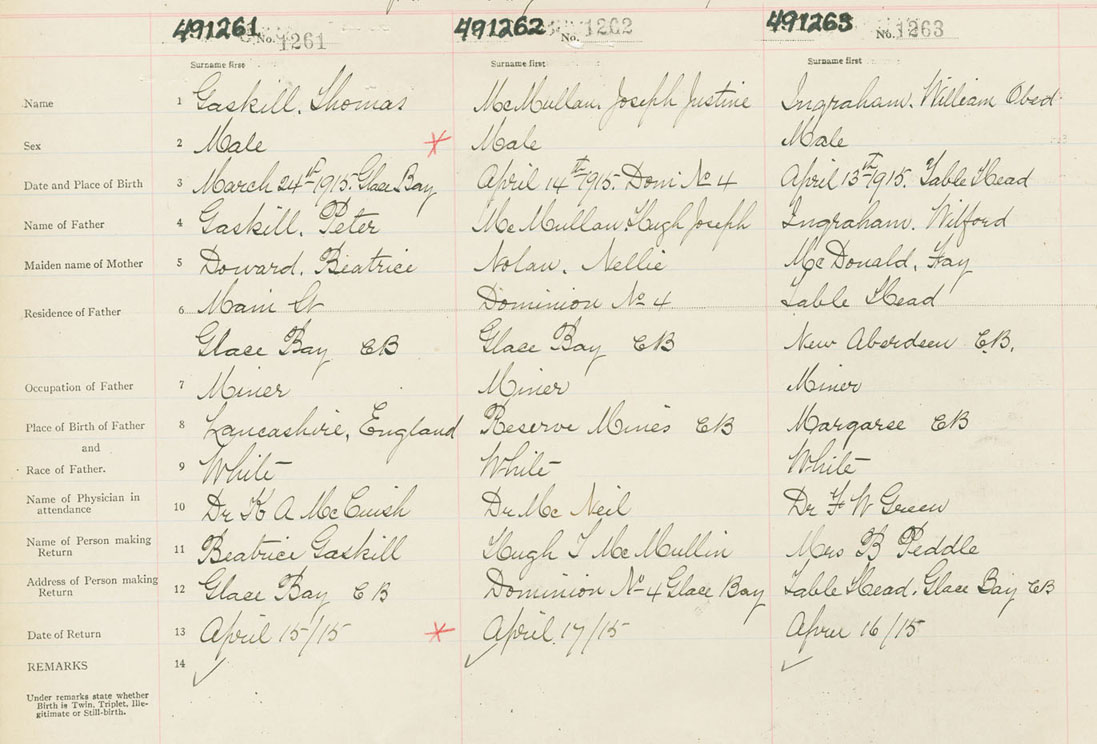 491261 No. 1261 491262 No. 1262 491263 No. 1263
Surname first Surname first Surname first
Name 1 Gaskill, Thomas McMullan, Joseph Justine Ingraham, William Obed
Sex 2 Male Male Male
Date and Place of Birth 3 March 24th 1915. Glace Bay April 14th 1915. Dom. No 4 April 13th 1915. Table Head
Name of Father 4 Gaskill, Peter McMullan, Hugh Joseph Ingraham, Wilford
Maiden name of Mother 5 Doward, Beatrice Nolan, Nellie McDonald, Fay
Residence of Father 6 Main St Dominion No 4 Table Head
Glace Bay CB Glace Bay CB New Aberdeen C.B.
Occupation of Father 7 Miner Miner Miner
Place of Birth of Father 8 Lancashire, England Reserve Mines CB Margaree CB
and
Race of Father. 9 White White White
Name of Physician in
attendance 10 Dr K A McCuish Dr Mc Neil Dr F W Green
Name of Person making
Return 11 Beatrice Gaskill Hugh J McMullin Mrs B Peddle
Address of Person making
Return 12 Glace Bay CB Dominion No 4 Glace Bay Table Head, Glace Bay CB
Date of Return 13 April 15/15 April 17/15 April 16/15
REMARKS 14
Under remarks state whether
Birth is Twin, Triplet, Ille-
gitimate or Still-birth.